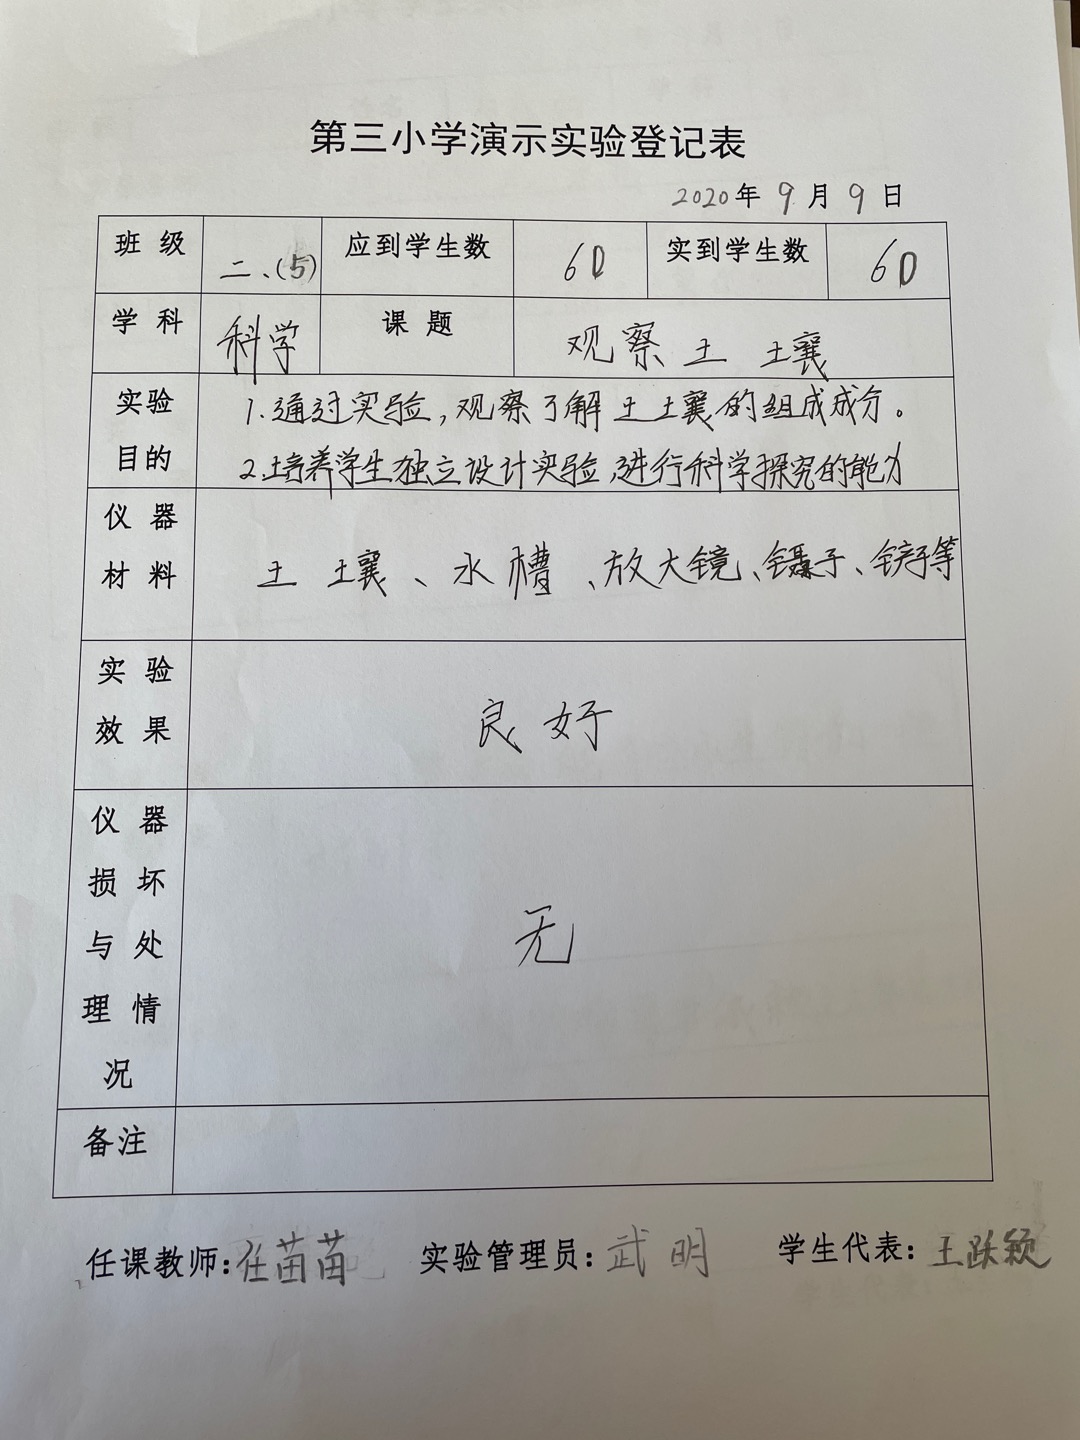 第三小学演示实验登记表
2020年9月9日
班级 二、(5) 应到学生数 60 实到学生数 60
学科 科学 课题 观察土壤
实验 1.通过实验,观察了解土壤的组成成分。
目的 2.培养学生独立设计实验,进行科学探究的能力
仪器
材料 土壤、水槽、放大镜、镊子、铲子等
实验
效果 良好
仪器
损坏
与处 无
理情
况
备注
任课教师:任苗苗 实验管理员:武明 学生代表:王跃颖